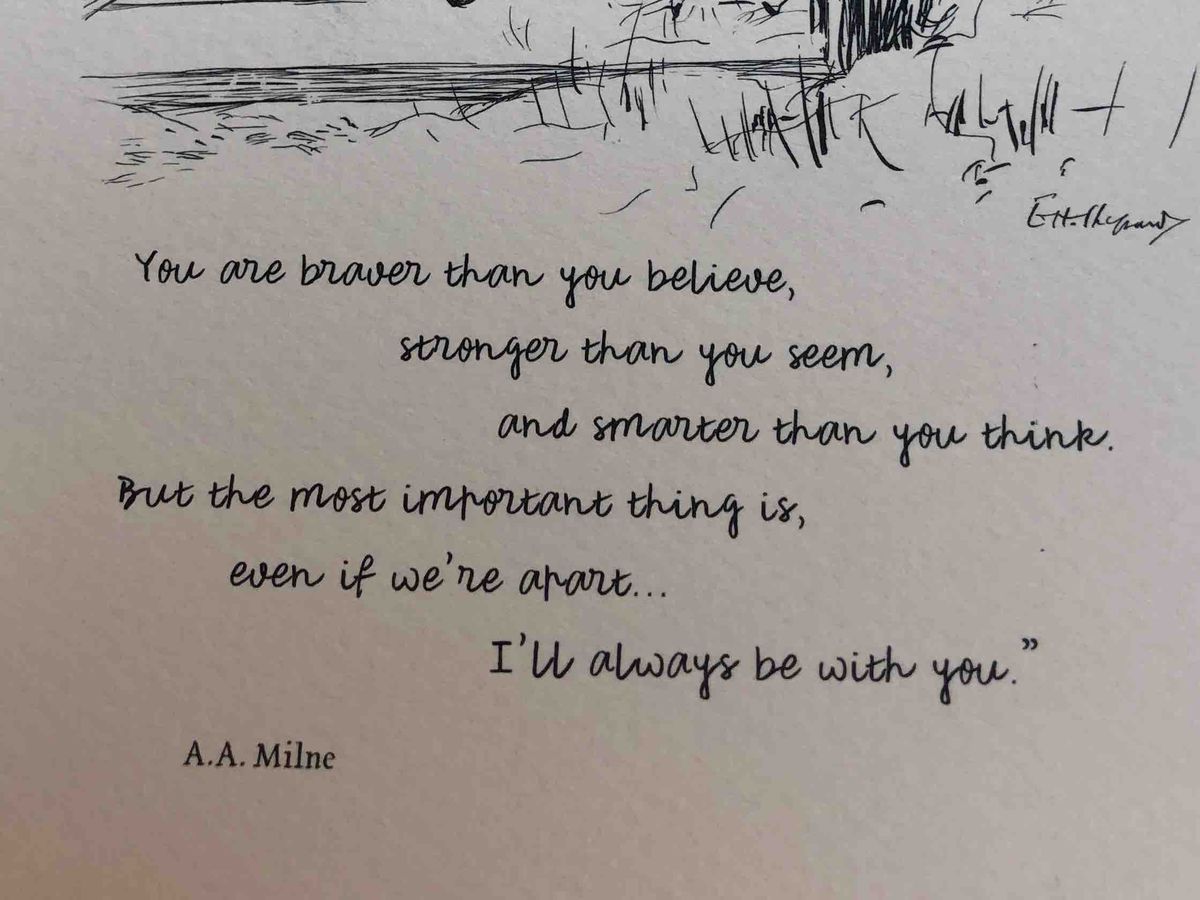 E.H.Shepard
You are braver than you believe,
stronger than you seem,
and smarter than you think.
But the most important thing is,
even if we're apart...
I'll always be with you.”
A.A. Milne